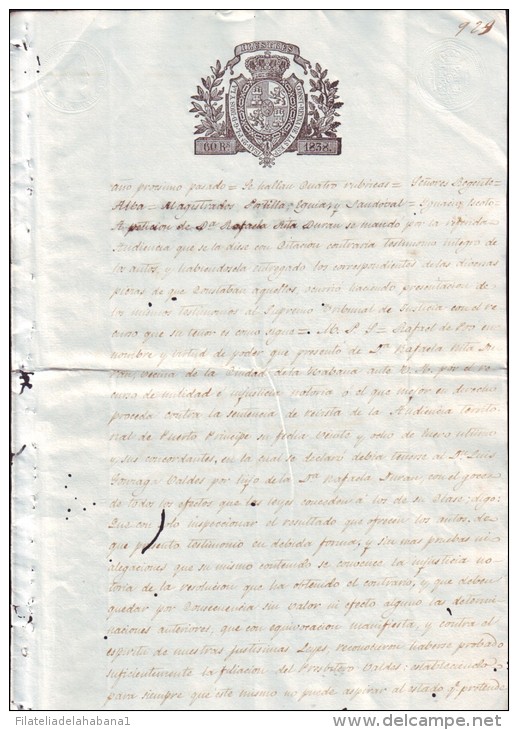 929
ILUSTRES
60 Rs.
1838.
año proximo pasado = Se hallan Quatro rubricas = Señores Regente
Alba = Magistrados Portilla, Eguia, y Sandoval = Ignacio
A peticion de Dª Rafaela Rita Duran se mando por la referida
Audiencia que se la diese con Citacion contraria testimonio integro de
los autos, y habiendosela entregado los correspondientes de las diversas
piezas de que Constaban aquellos, ocurrió haciendo presentacion de
los mismos testimonios al Supremo Tribunal de Justicia con el re-
curso que su tenor es como sigue = M. P. S. = Rafael de Oro en
nombre y virtud de poder que presentó de Dª Rafaela Rita Du-
ran, vecina de la Ciudad de la Habana ante V. A. por el re-
curso de nulidad é injusticia notoria ó el que mejor en derecho
proceda contra la sentencia de revista de la Audiencia territo-
rial de Puerto Principe su fecha Veinte y ocho de Enero ultimo
y sus concordantes, en la cual se declaró debia tenerse al Dn Luis
Gonzaga Valdes por hijo de la Dª Rafaela Duran, con el goce
de todos los efectos que las leyes conceden á los de su Clase, digo:
Que con solo inspeccionar el resultado que ofrecen los autos, de
que presento testimonio en debida forma, y sin mas pruebas ni
alegaciones que su mismo contenido se convence la injusticia no-
toria de la resolucion que ha obtenido el contrario, y que deben
quedar por Consecuencia sin valor ni efecto alguno las determi-
naciones anteriores, que con equivocacion manifiesta, y contra el
espiritu de nuestras justisimas Leyes, reconocieron haberse probado
suficientemente la filiacion del Presbitero Valdes: estableciendo
para siempre que este mismo no puede aspirar al estado qe pretende
Filateliadelahabana1
delcampe.net